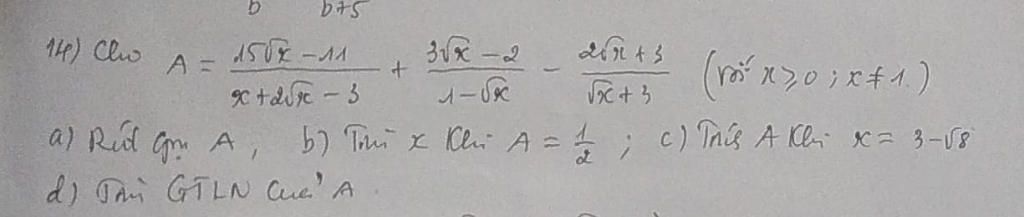 b b+5
14) Cho A = (15√x - 11)/(x + 2√x - 3) + (3√x - 2)/(1 - √x) - (2√x + 3)/(√x + 3) (với x ≥ 0 ; x ≠ 1.)
a) Rút gọn A, b) Tìm x khi A = 1/2 ; c) Tính A khi x = 3 - √8
d) Tìm GTLN của A.